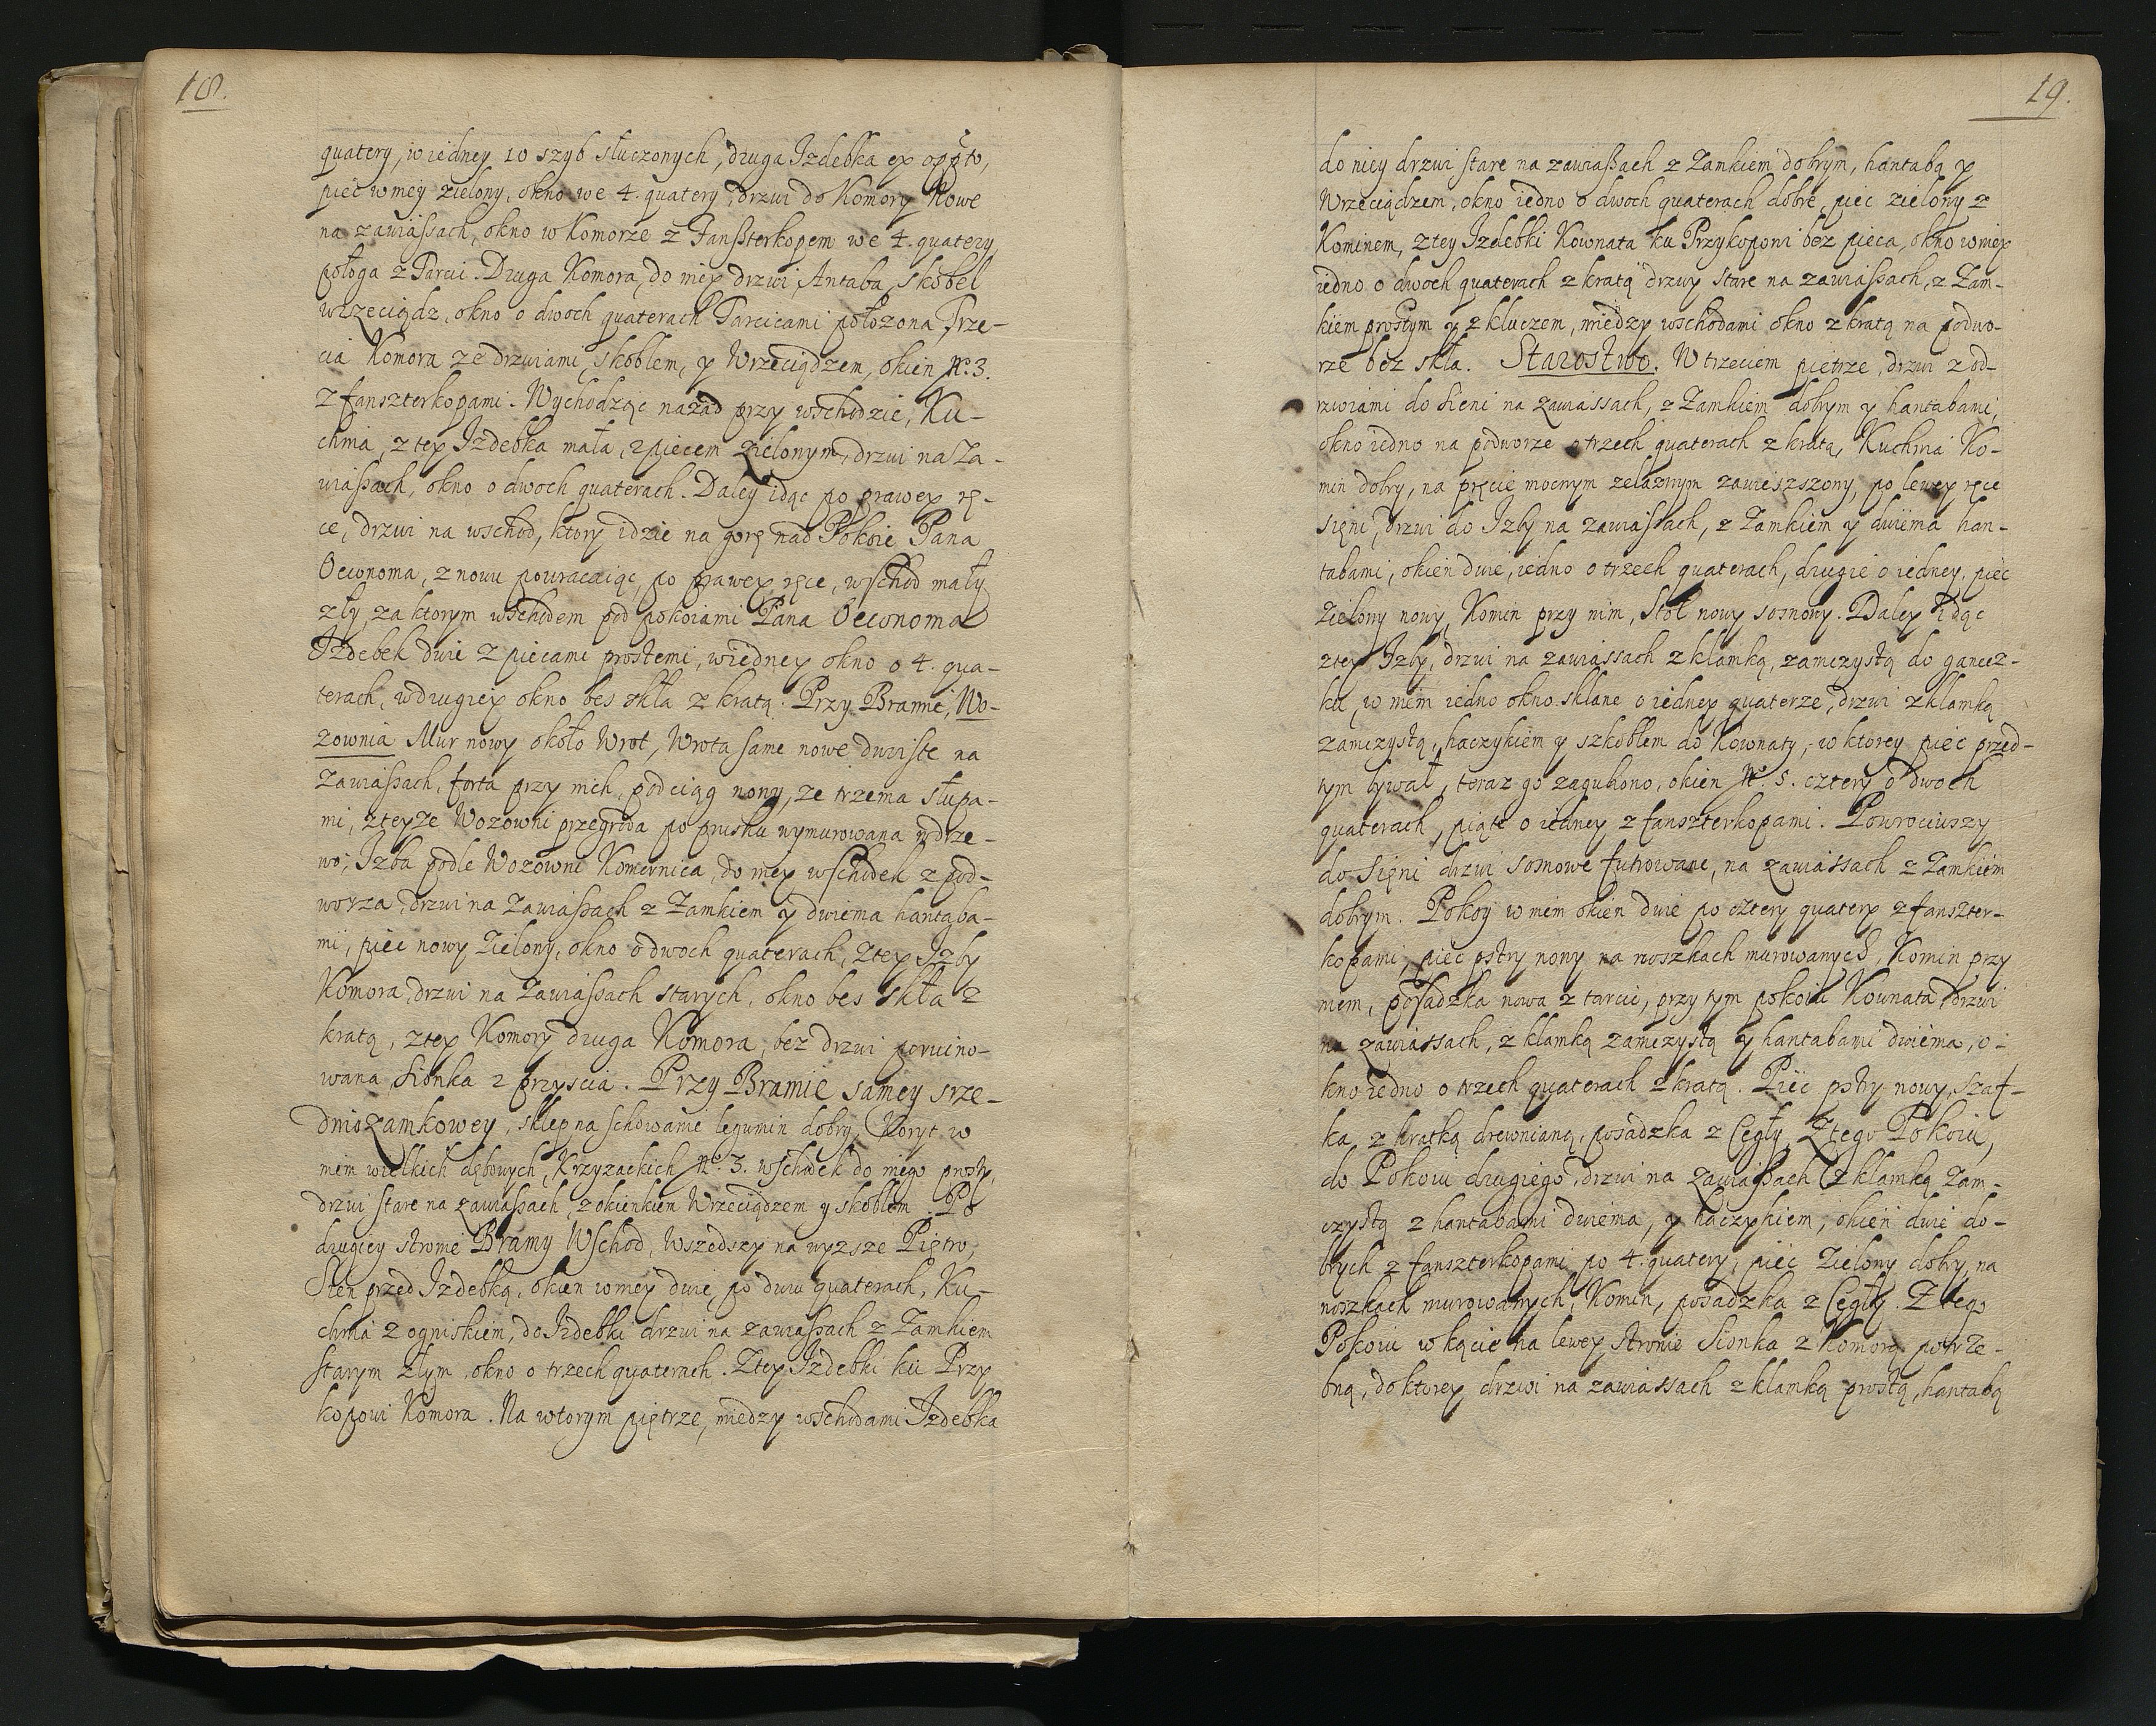 18.
quatery, w iedney 10 szyb stłuczonych, druga Izdebka ex opp̃to,
piec w niey zielony, okno we 4. quatery, drzwi do Komory Nowe
na zawiaſsach, okno w Komorze z Fanßterkopem we 4. quatery,
połoga z Tarcic. Druga Komora, do niey drzwi, Antaba, skobel
wrzeciądz, okno o dwoch quaterach Tarcicami położona, Trze-
cia Komora ze drzwiami, skoblem, y Wrzeciądzem, okien N̊. 3.
z fanszterkopami. Wychodząc nazad przy wschodzie, Ku-
chnia, z tey Izdebka mała, z piecem zielonym, drzwi na Za-
wiaſsach, okno o dwoch quaterach. Daley idąc po prawey rę-
ce, drzwi na wschod, ktory idzie na gorę nad Pokoie Pana
Oeconoma, znowu powracaiąc, po prawey ręce, wſchod mały
zły, za ktorym wschodem pod pokoiami Pana Oeconoma
Izdebek dwie z piecami prostemi, w iedney okno o 4. qua-
terach, w drugiey okno bes skła z kratą. Przy Bramie, Wo-
zownia Mur nowy około Wrot, Wrota same nowe dwoiste na
zawiaſsach, forta przy nich, podciąg nowy, ze trzema słupa-
mi, z teyże Wozowni przegroda po prusku wymurowana w drze-
wo; Izba podle Wozowni Komornica, do niey wſchodek z pod-
worza, drzwi na zawiaſsach z Zamkiem y dwiema hantaba-
mi, piec nowy zielony, okno o dwoch quaterach, z tey Izby
Komora, drzwi na Zawiaſsach starych, okno bes skła z
kratą, z tey Komory druga Komora, bez drzwi poruino-
wana, Sionka z przyscia. Przy Bramie samey srze-
dniozamkowey, sklep na schowanie legumin dobry, Koryt w
niem wielkich dębowych, Krzyzackich N̊. 3. wſchodek do niego prosty,
drzwi stare na zawiaſsach, z okienkiem Wrzeciądzem y skoblem. Po
drugiey stronie Bramy Wschod, Wszedszy na wyzsze Piętro,
Sień przed Izdebką, okien w niey dwie, po dwu quaterach, Ku-
chnia z ogniskiem, do Izdebki drzwi na zawiaſsach z Zamkiem
starym złym, okno o trzech quaterach. Z tey Izdebki ku Przy
kopowi Komora. Na wtorym piętrze, miedzy wschodami Izdebka
19.
do niey drzwi stare na zawiaſsach z Zamkiem dobrym, hantabą y
Wrzeciądzem, okno iedno o dwoch quaterach dobre, piec zielony z
Kominem, z tey Izdebki Kownata ku Przykopowi bez pieca, okno w niey
iedno o dwoch quaterach z kratą drzwy stare na zawiaſsach, z Zam-
kiem prostym y z kluczem, miedzy wschodami okno z kratą na podwo-
rze bez skła. Starostwo. W trzeciem piętrze, drzwi z od-
rzwiami do Sieni na zawiassach, z Zamkiem dobrym y hantabami,
okno iedno na podworze o trzech quaterach z kratą, Kuchnia Ko-
min dobry, na pręcie mocnym zelaznym zawieszszony, po lewey ręce
sieni, drzwi do Izby na zawiaſsach, z Zamkiem y dwiema han-
tabami, okien dwie, iedno o trzech quaterach, drugie o iedney, piec
zielony nowy, Komin przy nim, stoł nowy sosnowy. Daley idąc
z tey Izby, drzwi na zawiassach z klamką, zamczystą do gancz-
ku, w niem iedno okno sklane o iedney quaterze, drzwi z klamką
zamczystą, haczykiem y szkoblem do Kownaty, w ktorey piec przed-
tym bywał, teraz go zagubiono, okien N̊. 5. cztery o dwoch
quaterach, piąte o iedney z fanszterkopami. Powrociwszy
do Sięni drzwi sosnowe futrowane, na zawiassach z Zamkiem
dobrym. Pokoy w niem okien dwie po cztery quatery z fanszter-
kopami, piec pstry nowy na noszkach murowanych, Komin przy
niem, posadzka nowa z tarcic, przy tym pokoiu Kownata, drzwi
na zawiassach, z klamką zamczystą y hantabami dwiema, o-
kno iedno o trzech quaterach z kratą. Piec pstry nowy, szaf-
ka z kratką drewnianą, posadzka z Cegły. Z tego Pokoiu,
do Pokoiu drugiego, drzwi na zawiaſsach z klamką zam-
czystą z hantabami dwiema, y haczykiem, okien dwie do-
brych z fanszterkopami po 4. quatery, piec zielony dobry, na
noszkach murowanych, Komin, posadzka z Cegły. Z tego
Pokoiu w kącie na lewey stronie Sionka z Komorą potrze-
bną, do ktorey drzwi na zawiassach z klamką prostą, hantabą